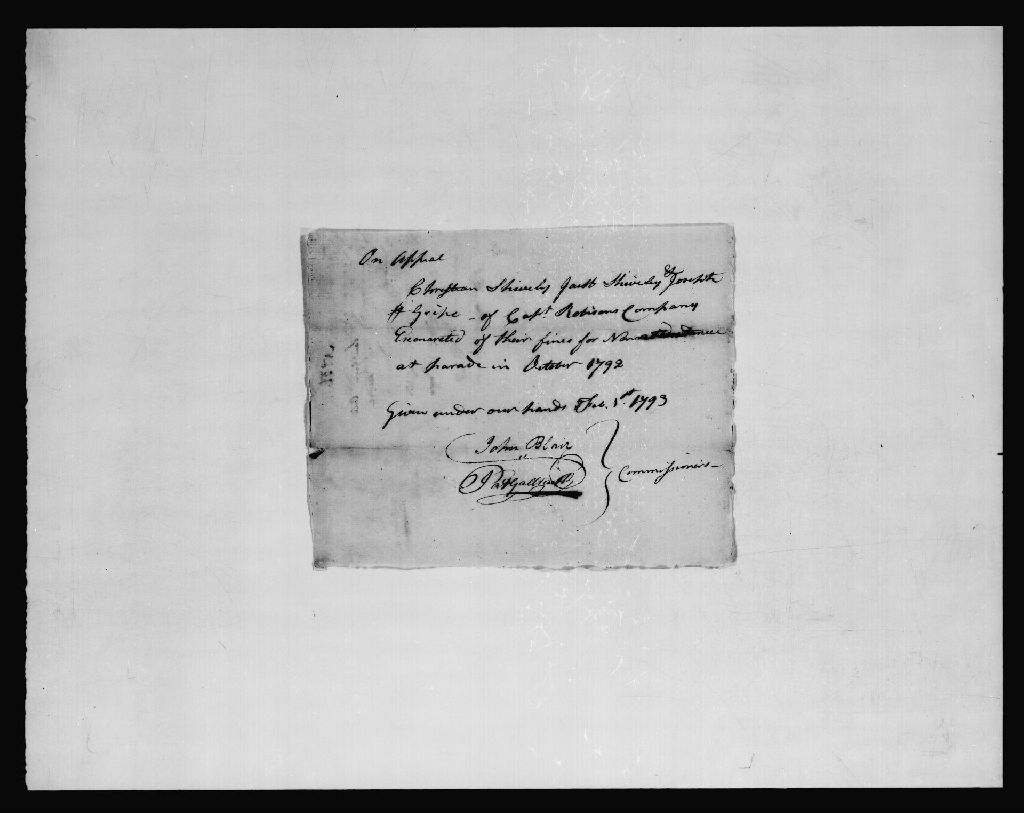 On Appeal
Christian Shively Jacob Shively & Joseph
Gripe - of Capt Robisons Company
Exonerated of their fines for Nonattendance
at parade in October 1792
Given under our hands Feb. 1st 1793
John Blair
Commissioners